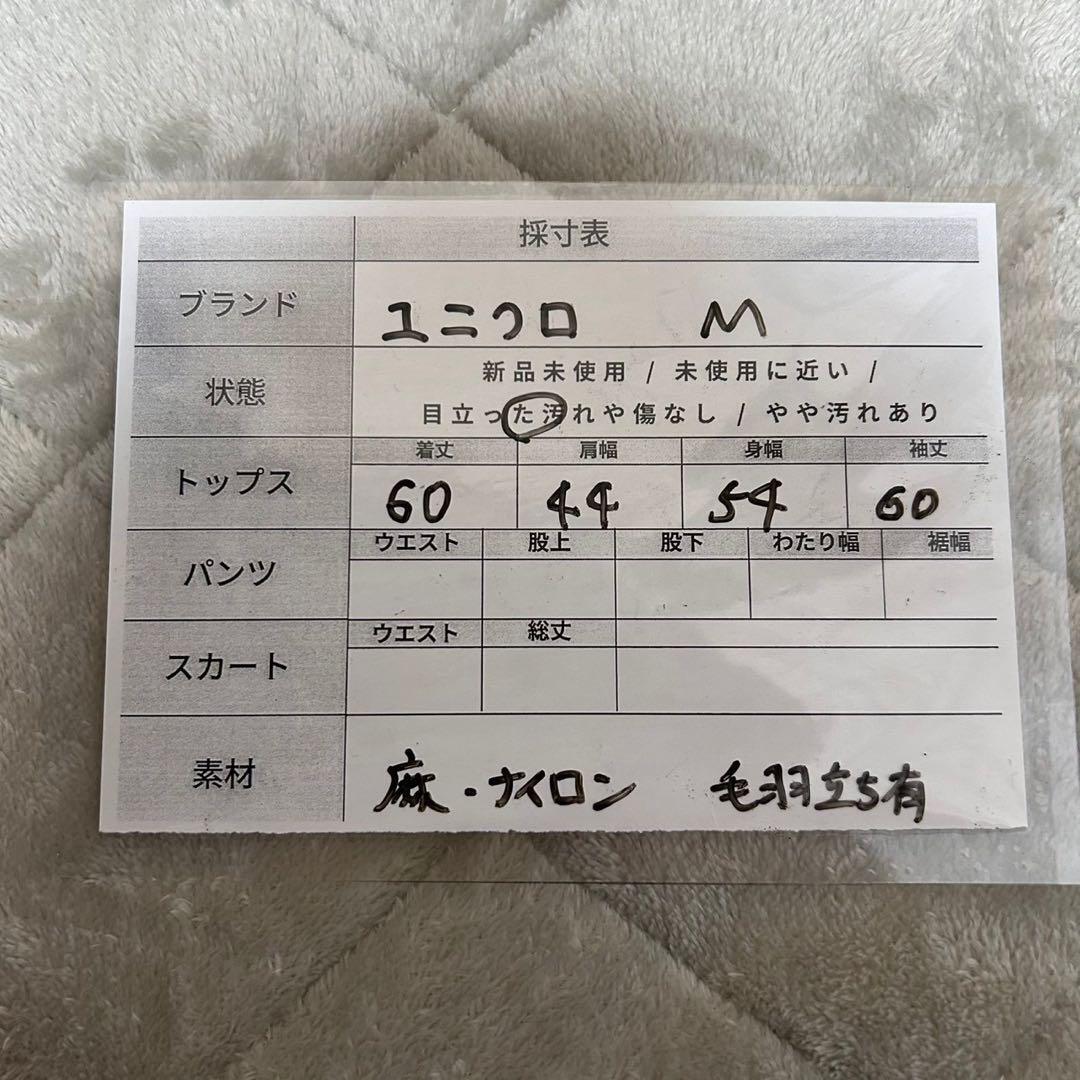 採寸表
ブランド ユニクロ M
状態 新品未使用 / 未使用に近い /
目立った汚れや傷なし / やや汚れあり
着丈 肩幅 身幅 袖丈
トップス 60 44 54 60
ウエスト 股上 股下 わたり幅 裾幅
パンツ
ウエスト 総丈
スカート
素材 麻・ナイロン 毛羽立ち有